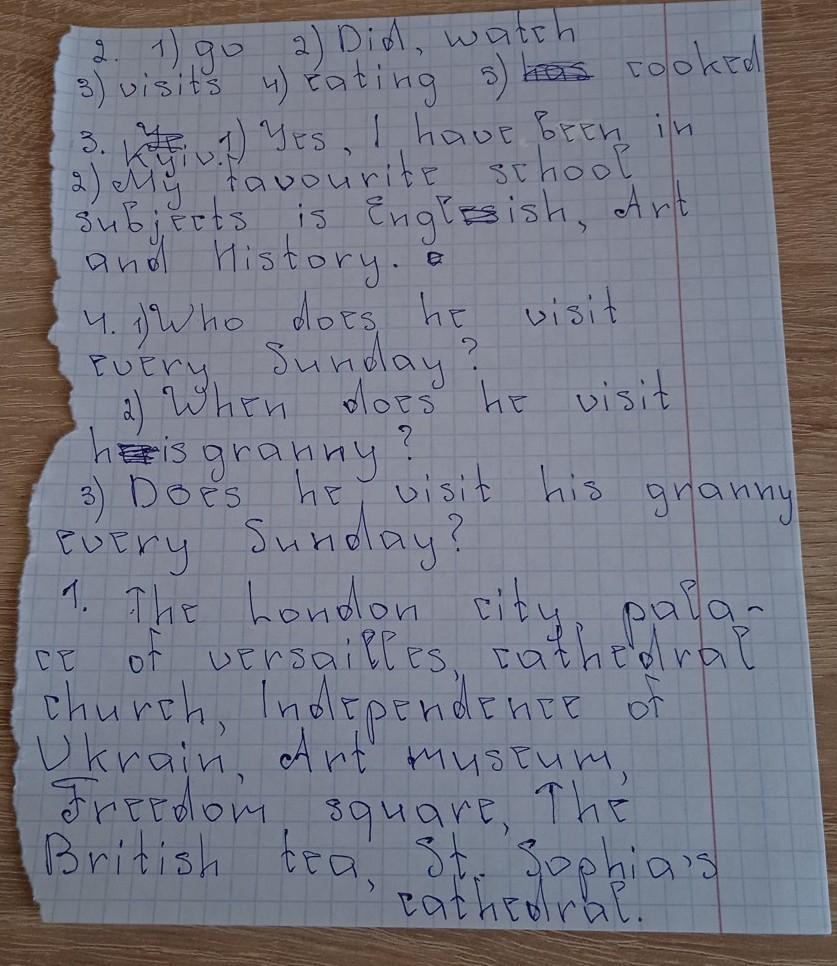 2. 1) go 2) Did, watch
3) visits 4) eating 5) cooked
3. 1) Yes, I have been in
Kyiv.
2) My favourite school
subjects is English, Art
and History.
4. 1) Who does he visit
every Sunday?
2) When does he visit
his granny?
3) Does he visit his granny
every Sunday?
1. The London city, pala-
ce of versailles, cathedral
church, Independence of
Ukrain, Art museum,
Freedom square, The
British tea, St. Sophia's
cathedral.